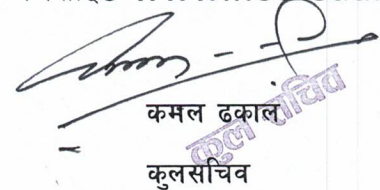 कमल ढकाल
कुल सचिव
कुलसचिव